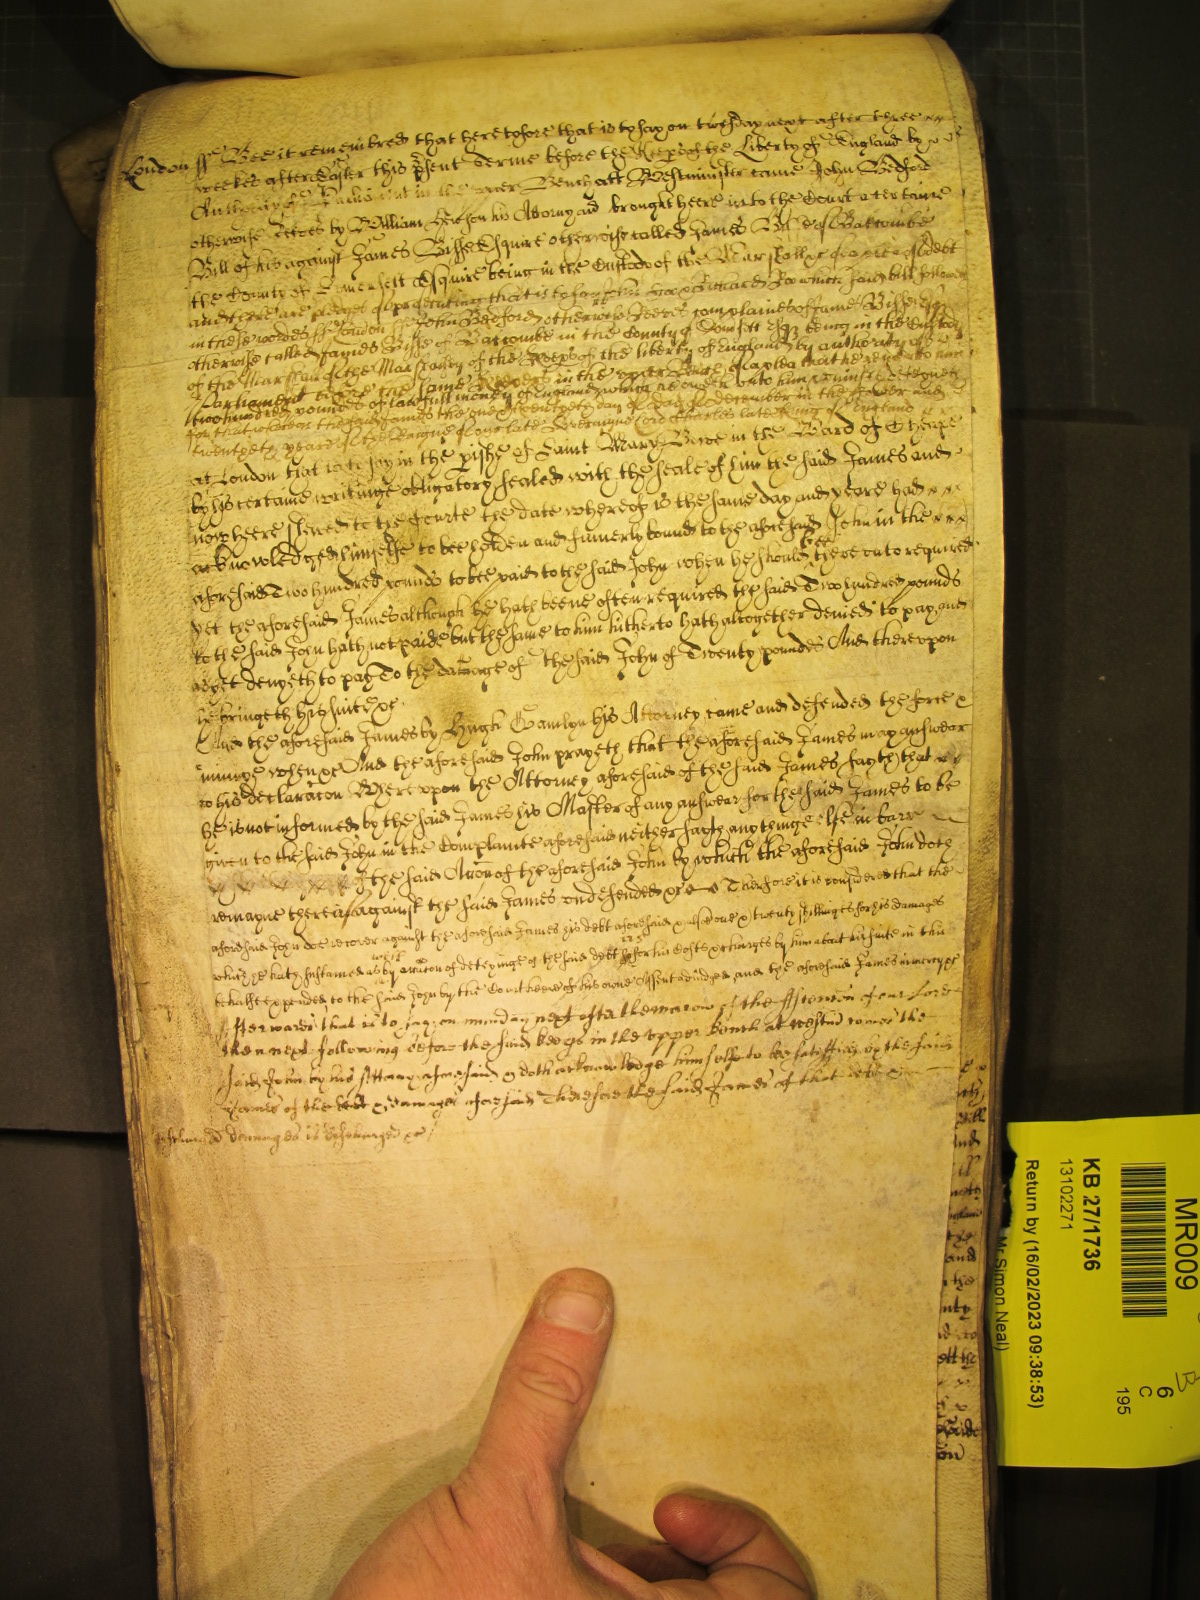 London ss Bee it remembred that heretofore that is to say on twesday next after three
weekes after Easter this psent Terme before the Keeps of the Liberty of England by
Authority of Parliament in the upper Bench att Westminster came John Bedford
otherwise Reeves by William his Attorny and brought heere into the Court a certaine
Bill of his against James Bisse Esquire otherwise called James Bisse of Batcombe
the County of Somersett Esquire being in the Custody of the Marshall &c of a plea of debt
and there are pledges of prosecuting that is to say John and Richard Roe which said bill followes
in these wordes ss London ss John Bedford otherwise Reeves complaines of James Bisse Esqr
otherwise called James Bisse of Batcombe in the County of Somsett Esqr being in the Custody
of the Marshall of the Marshalsey of the Keeps of the liberty of England by authority of
Parliament before the same Keepers in the upper Bench of a plea that he render to him
two hundred pounds of lawfull money of England which he oweth unto him & uniustly deteyneth
for that whereas the said James the one & twentyeth day of December in the
twentyeth yeare of the Raigne of our late Soveraigne Lord Charles late King of England
at London that is to say in the pishe of Saint Mary Bowe in the Ward of Cheape
by his certaine writinge obligatory sealed with the seale of him the said James and
now heere shewed to the Courte the date whereof is the same day and yeare had
acknowledged himselfe to bee holden and firmerly bound to the aforesaid John in the
aforesaid Two hundred pounds to bee paid to the said John when he should bee there unto required
yet the aforesaid James although he hath beene often required the said Two hundred pounds
to the said John hath not paide but the same to him hitherto hath altogether denied to pay and
as yet denyeth to pay To the damage of the said John of Twenty pounds And thereupon
he bringeth his suite &c
And the aforesaid James by Hugh his Attorney came and defended the force &
iniurye when &c And the aforesaid John prayeth that the aforesaid James may answear
to his declaracon Whereupon the Attorney aforesaid of the said James sayth that
he is not informed by the said James his Master of any answear for the said James to be
given to the said John in the Complainte aforesaid neither sayth any thinge else in barr
of the said Accon of the aforesaid John by which the aforesaid John doth
remayne therein against the said James undefended &c Therefore it is considered that the
aforesaid John doe recover against the aforesaid James his debt aforesaid & alsoe one & twenty shillinges for his damages
which he hath susteined as well by occacon of deteyninge of the said debt as for his Costs & charges by him about his suite in this
behalfe expended to the said John by the Court heere of his owne assent adiudged and the aforesaid James in mercy &c
Afterwards that is to say on munday next after the marow of the Assencion of our Lord
then next following before the said keeps in the upper bench at westmr comes the
said John by his Attorny aforesaid & doth acknowledge himselfe to bee satisfied by the said
James of the debt & damages aforesaid Therefore the said James of that debt
and dammages is discharged &c
MR009
KB 27/1736
13102271
Return by (16/02/2023 09:38:53)
Mr Simon Neal)
6
C
195